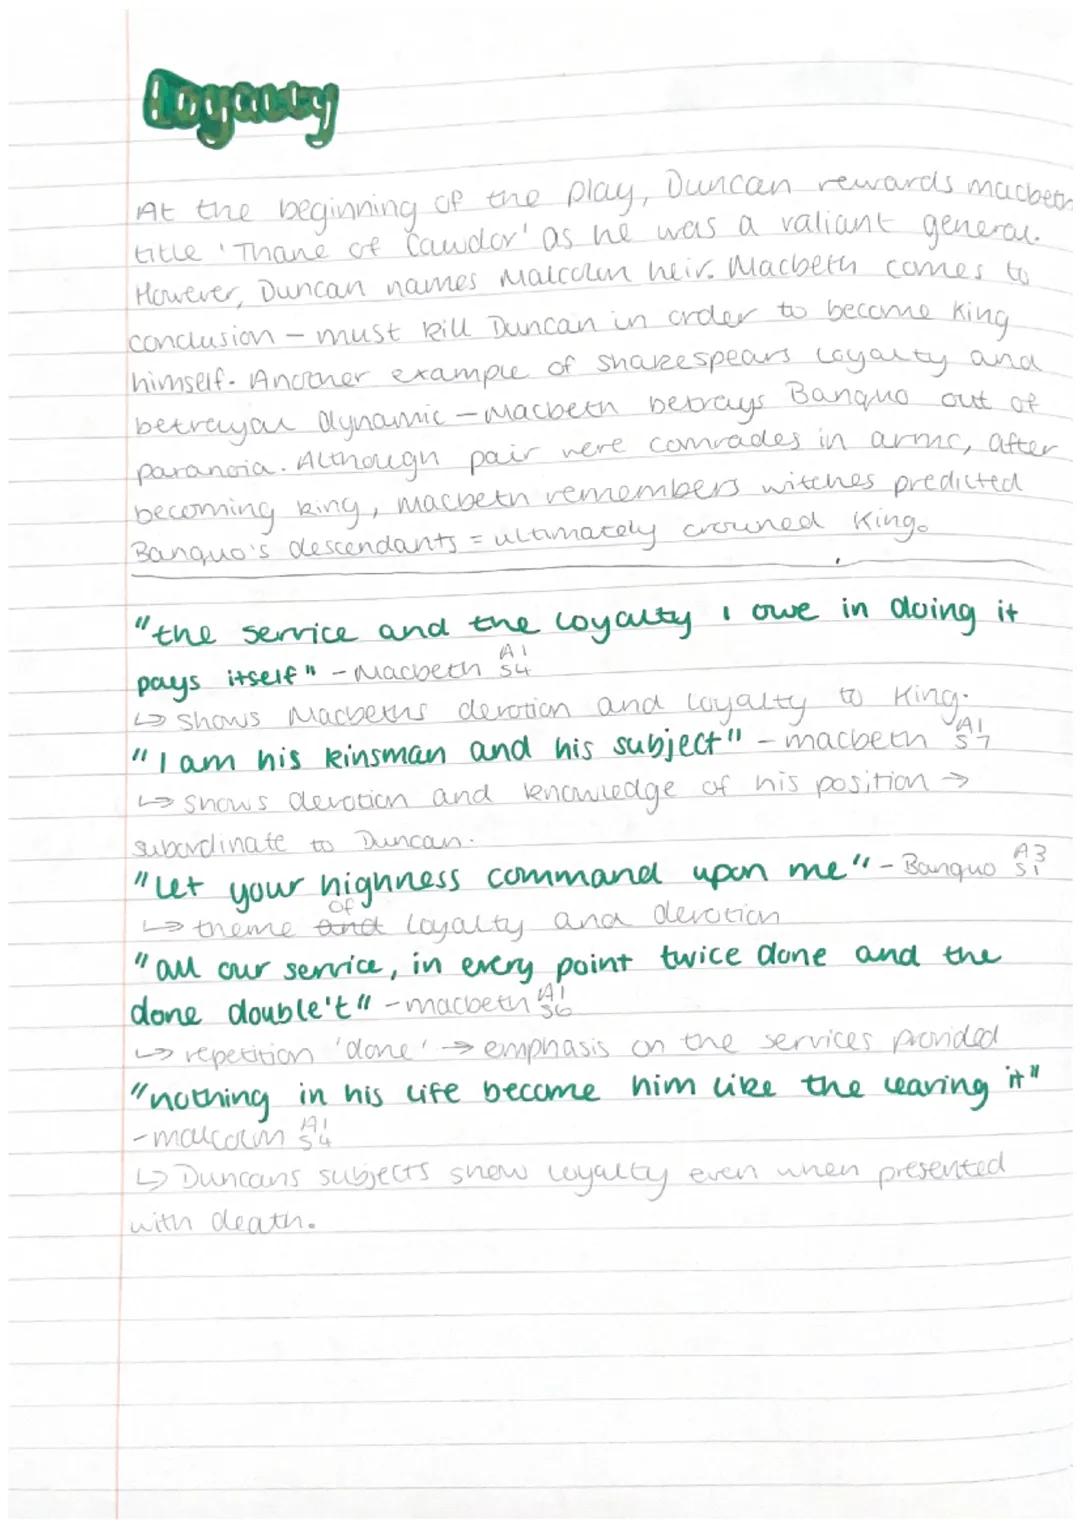 Loyalty
At the beginning of the play, Duncan rewards macbeth
title 'Thane of Cawdor' as he was a valiant general.
However, Duncan names Malcolm heir. Macbeth comes to
conclusion - must kill Duncan in order to become King
himself. Another example of shakespears loyalty and
betrayal dynamic - Macbeth betrays Banquo out of
paranoia. Although pair were comrades in arms, after
becoming king, macbeth remembers witches predicted
Banquo's descendants = ultimately crowned King.
"the service and the loyalty I owe in doing it
pays itself" - Macbeth A1 S4
↳ shows Macbeths devotion and loyalty to King.
"I am his kinsman and his subject" - macbeth A1 S7
↳ shows devotion and knowledge of his position →
subordinate to Duncan.
"Let your highness command upon me" - Banquo A3 S1
↳ theme and of loyalty and devotion
"all our service, in every point twice done and the
done double't" - macbeth A1 S6
↳ repetition 'done' → emphasis on the services provided
"nothing in his life become him like the leaving it"
- malcolm A1 S4
↳ Duncans subjects show loyalty even when presented
with death.